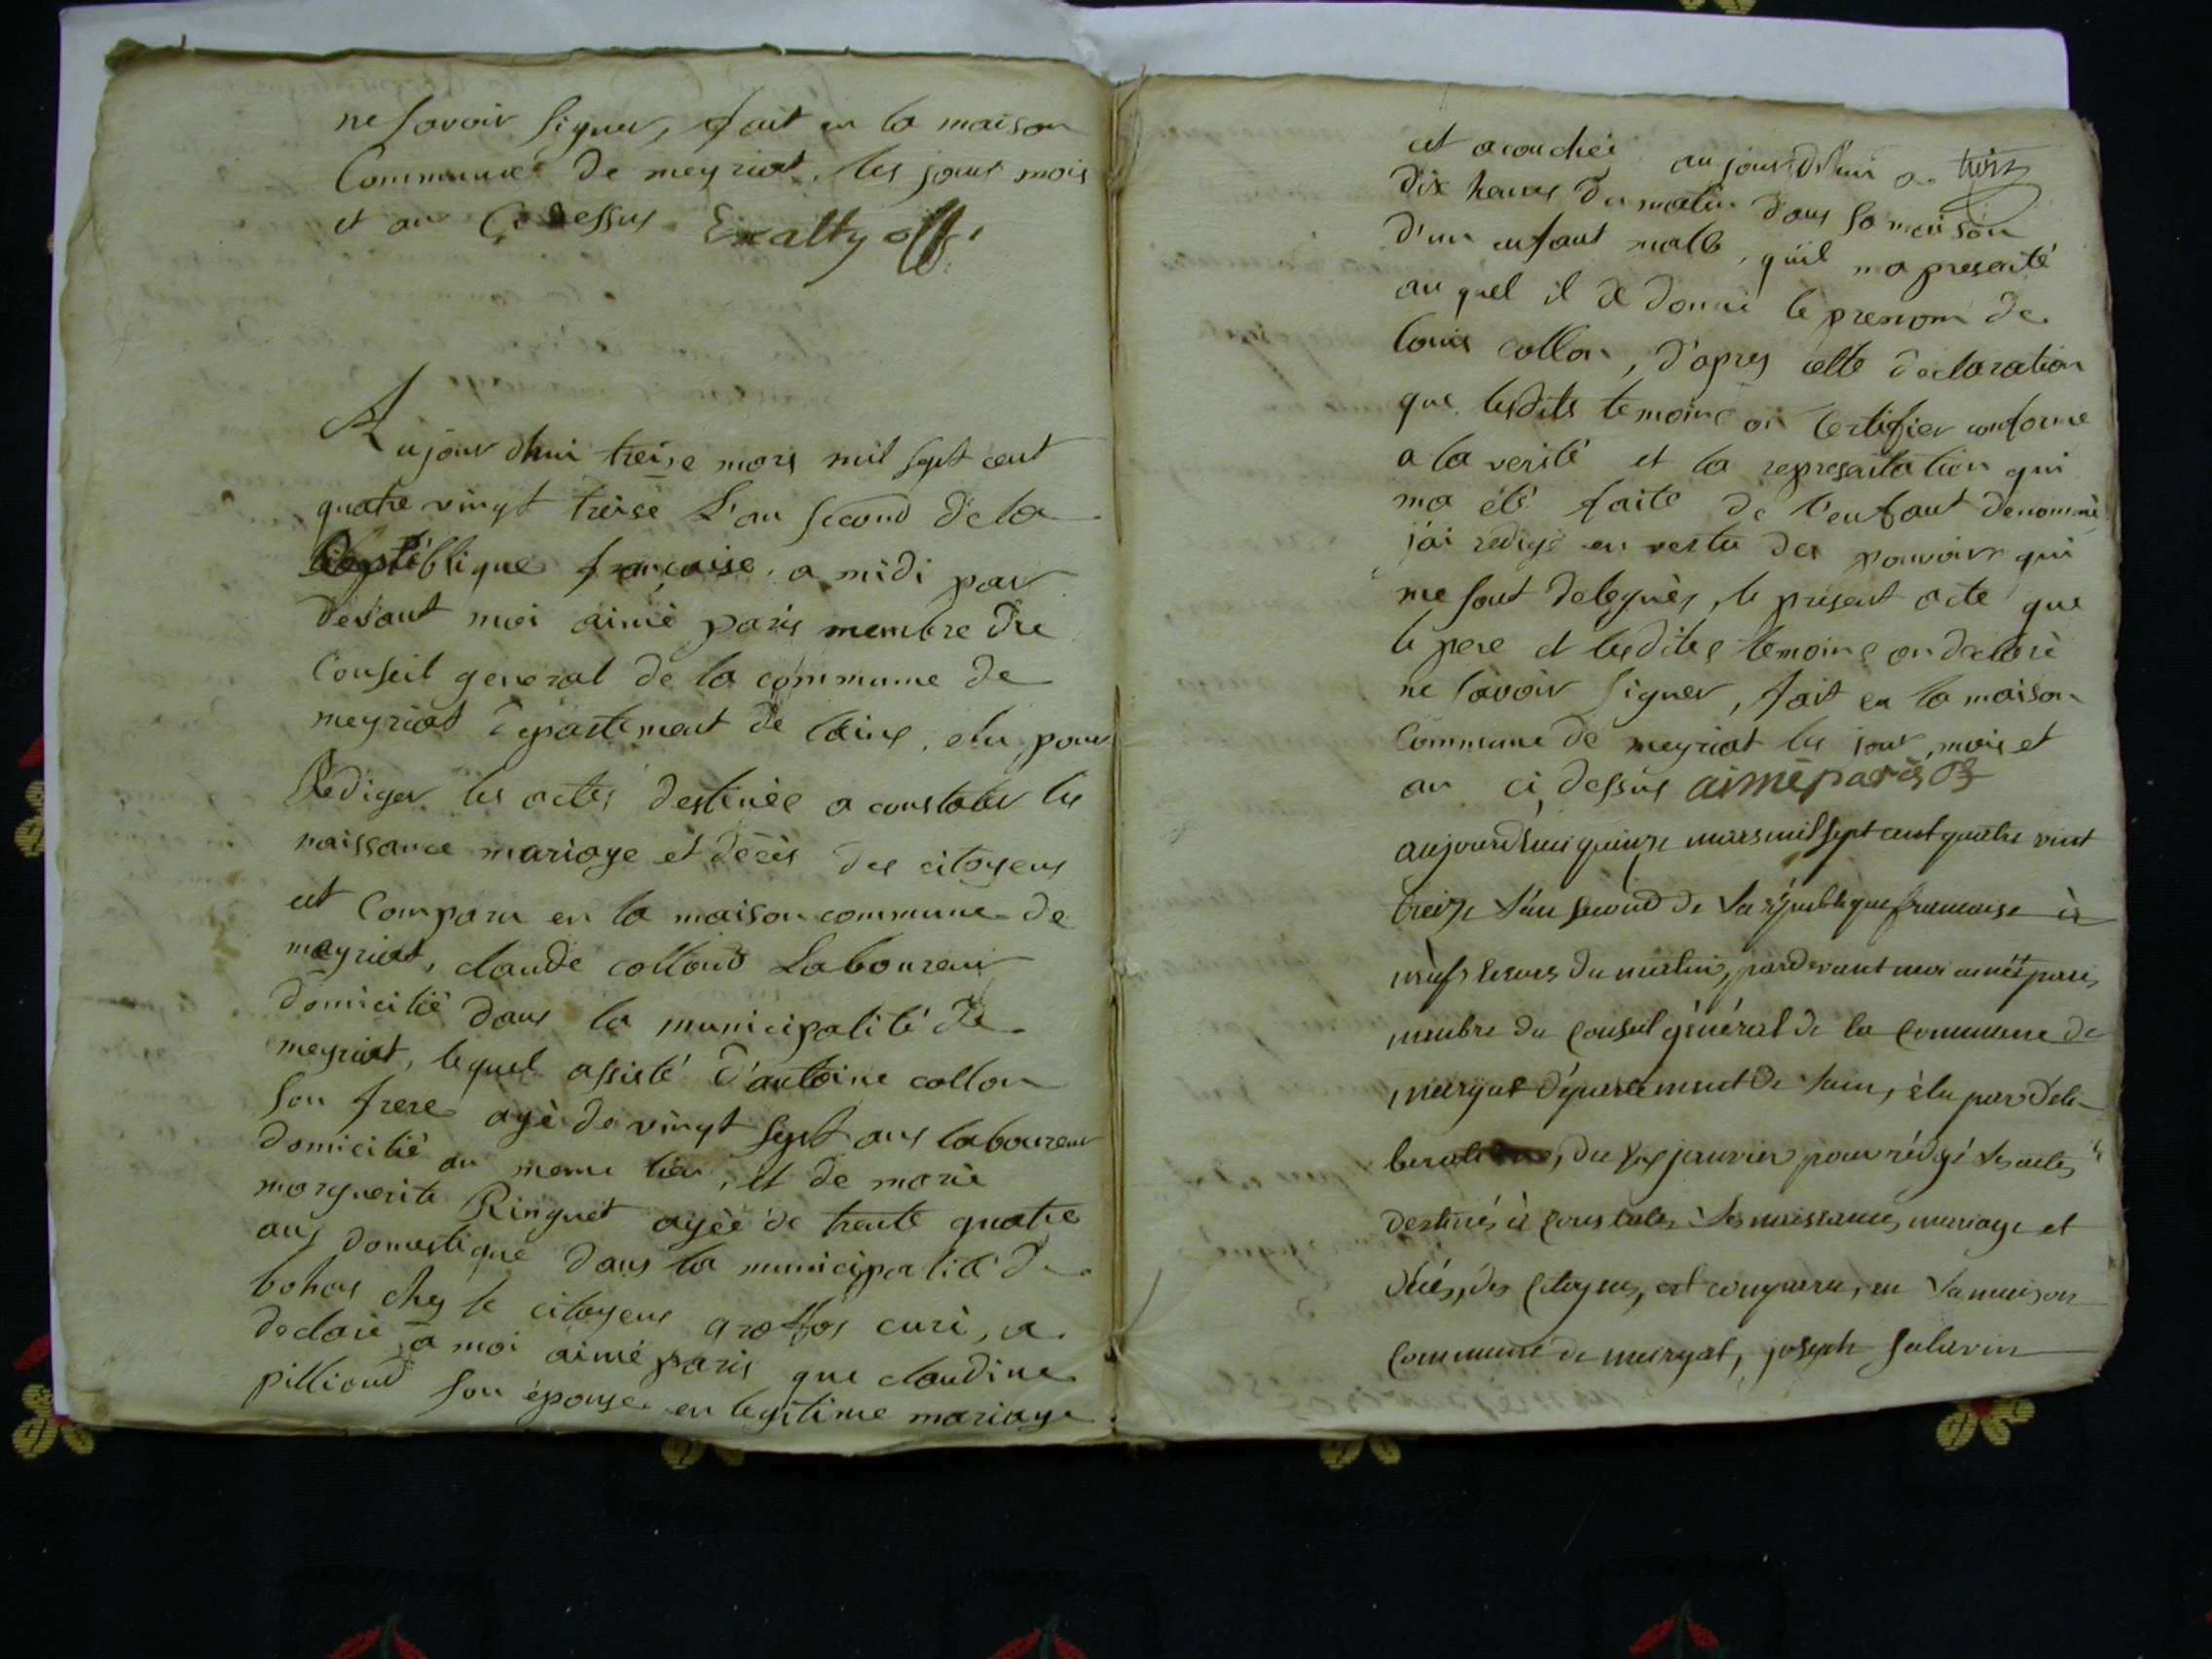 ne savoir signer, fait en la maison
Commune de meyriat, les jour mois
et an Ci dessus
Aujourdhui treise mars mil sept cent
quatre vingt treise L'an second de la
Republique française, a midi par
devant moi aimé paris membre du
Conseil general de la commune de
meyriat departement de l'aine, elu pour
Rediger les actes destinée a constater les
naissance mariage et décès des citoyens
est Comparu en la maison commune de
meyriat, claude colloud Laboureur
domicilié dans la municipalité de
meyriat, lequel assisté d'antoine collon
son frere agé de vingt sept ans laboureur
domicilié au meme lieu, et de marie
marguerite Ringuet agée de trente quatre
ans domestique dans la municipalité de
bohas chez le citoyens curé, a
declaré a moi aimé paris que claudine
pillioud son épouse en legitime mariage
est acouchée au jourd'hui a trois
dix heures du matin dans sa maison
d'un enfant malle, qu'il ma presenté
au quel il a donné le prenom de
louis collon, d'apres cette declaration
que lesdits temoins on Certifier conforme
a la verité et la representation qui
ma été faite de l'enfant denommé
j'ai redigé en vertu des pouvoirs qui
me sont delegués, le present acte que
le pere et lesdites temoins on declaré
ne savoir signer, fait en la maison
Commune de meyriat les jour, mois et
an ci, dessus aimé paris
aujourdhui quinze mars mil sept cent quatre vint
treize l'an second de la république francaise à
neufs heures du matin, pardevant moi aimé paris
membre du conseil général de la commune de
meiryat département de lain, élu par déli-
, du janvier pour rédigé les actes
destinés à constater les naissances, mariage et
décés, des Citoyens, est comparu, en la maison
commune de meiryat, joseph salavin